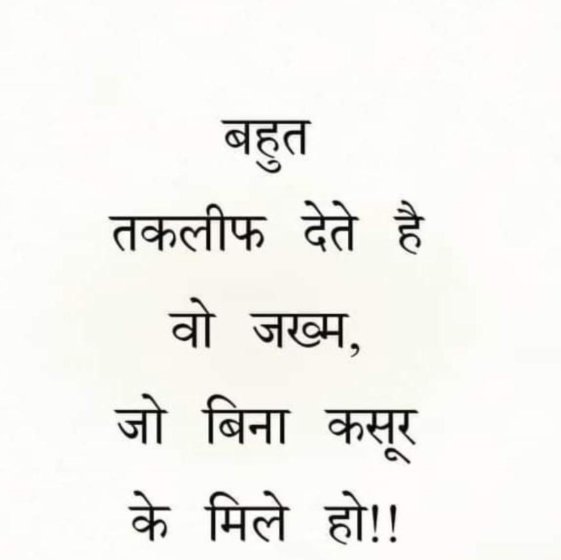 बहुत
तकलीफ देते है
वो जख्म,
जो बिना कसूर
के मिले हो!!